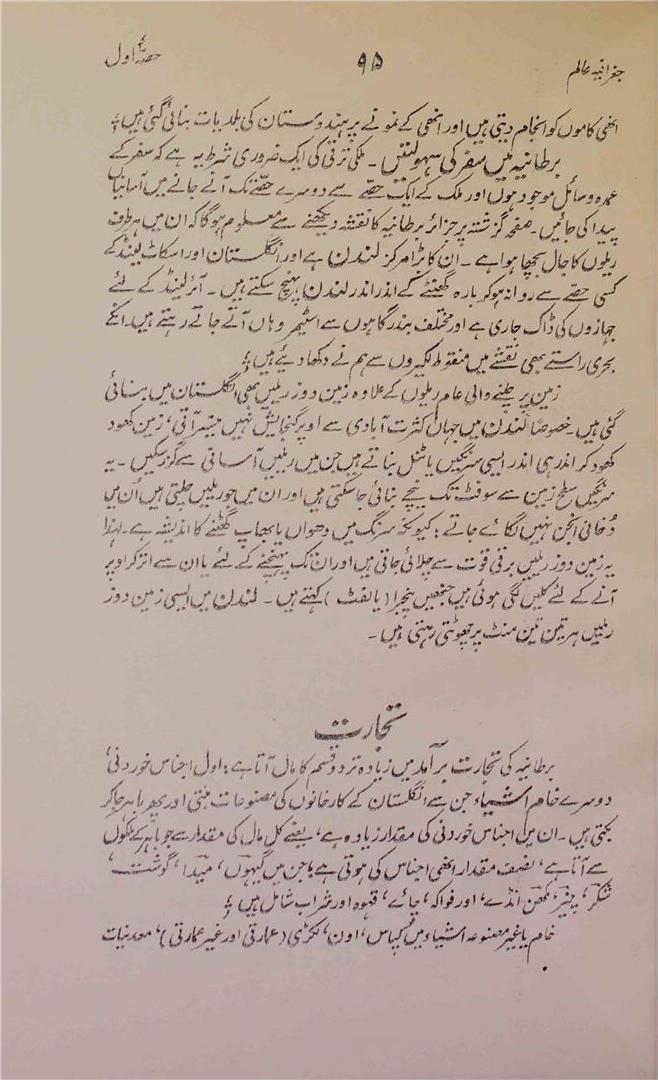 جغرافیہ عالم
۹۵
حصۂ اول
انھی کاموں کو انجام دیتی ہیں اور انھی کے نمونے پر ہندوستان کی بلدیات بنائی گئی ہیں ؛
برطانیہ میں سفر کی سہولتیں ۔ ملکی ترقی کی ایک ضروری شرط یہ ہے کہ سفر کے
عمدہ وسائل موجود ہوں اور ملک کے ایک حصے سے دوسرے حصّے تک آنے جانے میں آسانیاں
پیدا کی جائیں ۔ صفحہ گزشتہ پر جزائر برطانیہ کا نقشہ دیکھنے سے معلوم ہوگا کہ ان میں ہر طرف
ریلوں کا جال بچھا ہوا ہے ۔ ان کا بڑا مرکز لندن ہے اور انگلستان اور اسکاٹ لینڈ کے
کسی حصّے سے روانہ ہوکر بارہ گھنٹے کے اندر اندر لندن پہنچ سکتے ہیں ۔ آئرلینڈ کے لئے
جہازوں کی ڈاک جاری ہے اور مختلف بندرگاہوں سے اسٹیمر وہاں آتے جاتے رہتے ہیں۔ انکے
بحری راستے بھی نقشے میں منقوط لکیروں سے ہم نے دکھا دیئے ہیں ؛
زمین پر چلنے والی عام ریلوں کے علاوہ زمین دوز ریلیں بھی انگلستان میں بنائی
گئی ہیں۔ خصوصاً لندن میں جہاں کثرت آبادی سے اوپر گنجایش نہیں میسر آتی، زمین کھود
کھود کر اندر ہی اندر ایسی سرنگیں یا ٹنل بناتے ہیں جن میں ریلیں آسانی سے گزر سکیں ۔ یہ
سرنگیں سطح زمین سے سو فٹ تک نیچے بنائی جاسکتی ہیں اور ان میں جو ریلیں چلتی ہیں اُن میں
دُخانی انجن نہیں لگائے جاتے ؛ کیونکہ سرنگ میں دھواں یا بھاپ گھٹنے کا اندیشہ ہے ۔ لہذا
یہ زمین دوز ریلیں برقی قوت سے چلائی جاتی ہیں اور ان تک پہنچنے کے لئے یا ان سے اتر کر اوپر
آنے کے لئے کلیں لگی ہوئی ہیں جنھیں پنجرا (یا لفٹ ) کہتے ہیں ۔ لندن میں ایسی زمین دوز
ریلیں ہر تین تین منٹ پر چھوٹتی رہتی ہیں ۔
تجارت
برطانیہ کی تجارت برآمد میں زیادہ تر دو قسم کا مال آتا ہے : اول اجناس خوردنی،
دوسرے خام اشیاء جن سے انگلستان کے کارخانوں کی مصنوعات بنتی اور پھر باہر جاکر
بکتی ہیں ۔ ان میں اجناس خوردنی کی مقدار زیادہ ہے، یعنے کل مال کی مقدار سے جو باہر کے ملکوں
سے آتا ہے، نصف مقدار انھی اجناس کی ہوتی ہے؛ جن میں گیہوں، میدا، گوشت،
شکر، پنیر، مکھن انڈے، اور فواکہ، چائے، قہوہ اور شراب شامل ہیں ؛
خام یا غیر مصنوعہ اشیاء میں کپاس، اون، لکڑی (عمارتی اور غیر عمارتی)، معدنیات